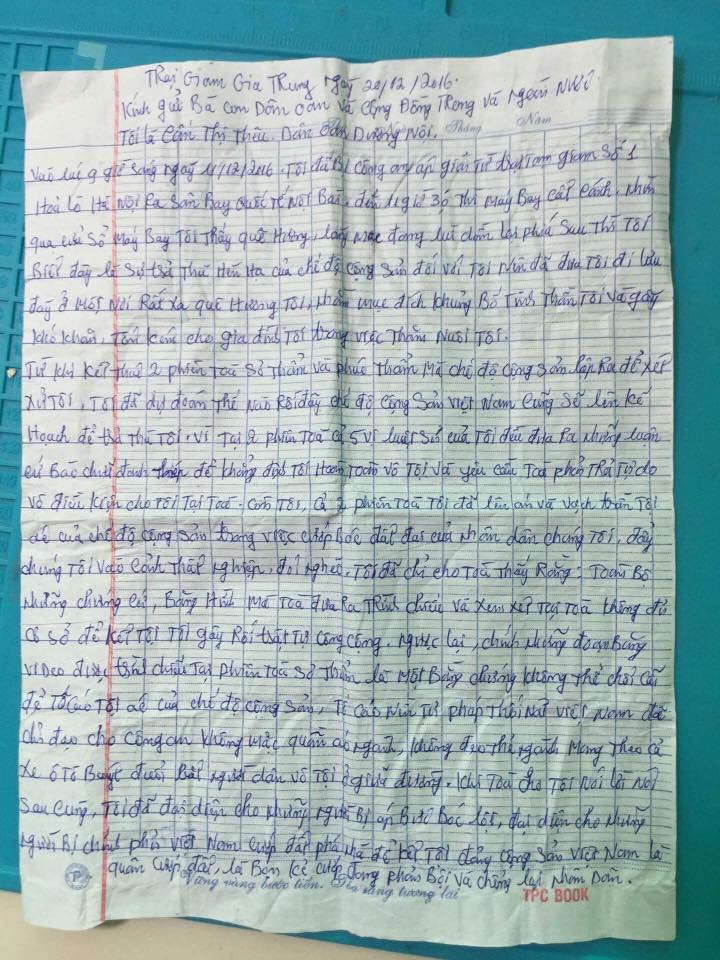 Trại Giam Gia Trung ngày 20/12/2016.
Kính gửi Bà con Dân oan và Cộng Đồng Trong và Ngoài Nước
Tôi là Cấn Thị Thêu. Dân oan Dương Nội. Tháng Năm
Vào lúc 9 giờ sáng ngày 11/12/2016. Tôi đã Bị Công an áp giải Từ trại Tạm giam Số 1
Hoả lò Hà Nội Ra Sân Bay Quốc Tế Nội Bài. đến 11 giờ 30 Thì Máy Bay cất Cánh. Nhìn
qua cửa Sổ Máy Bay Tôi Thấy quê Hương, làng Mạc đang lùi dần lại phía Sau Thì Tôi
Biết đây là Sự trả Thù Hèn Hạ của chế độ cộng Sản đối với Tôi Nên đã đưa Tôi đi lưu
đày ở Một Nơi Rất Xa quê Hương Tôi, Nhằm mục đích khủng Bố Tinh Thần Tôi và gây
khó khăn, Tốn kém cho gia đình Tôi trong việc Thăm Nuôi Tôi.
Từ khi kết thúc 2 phiên Toà Sơ Thẩm và phúc Thẩm Mà chế độ cộng Sản lập Ra để xét
xử Tôi, Tôi đã dự đoán Thế Nào Rồi đây chế độ cộng Sản việt Nam Cũng Sẽ lên kế
Hoạch để trả thù Tôi. vì Tại 2 phiên Toà cả 5 vị luật Sư của Tôi đều đưa Ra Những luận
cứ Bào chữa đanh thép để khẳng định Tôi Hoàn Toàn vô Tội và yêu cầu Toà phải Trả Tự do
vô điều kiện cho Tôi Tại Toà. Còn Tôi, cả 2 phiên Toà Tôi đã lên án và vạch trần Tội
ác của chế độ cộng Sản trong việc cướp Bóc đất đai của Nhân dân chúng Tôi, đẩy
chúng Tôi vào Cảnh Thất nghiệp, đói nghèo. Tôi đã chỉ cho Toà Thấy Rằng: Toàn Bộ
Những chứng cứ, Băng Hình Mà Toà đưa Ra Trình chiếu và Xem xét Tại Toà không đủ
Cơ Sở để kết Tội Tôi gây Rối trật Tự Công Cộng. ngược lại, chính Những đoạn Băng
video được trình chiếu Tại phiên Toà Sơ Thẩm là Một Bằng chứng không Thể chối Cãi
để Tố Cáo Tội ác của chế độ cộng Sản, Tố Cáo Nền Tư pháp Thối Nát Việt Nam đã
chỉ đạo cho Công an không mặc quần áo ngành, không đeo thẻ ngành Mang Theo cả
xe ô Tô Buýt đuổi Bắt người dân vô Tội ở giữa đường. Khi Toà cho Tôi Nói lời Nói
Sau Cùng, Tôi đã đại diện cho Những người Bị áp Bức Bóc lột, đại diện cho Những
người Bị chính phủ việt Nam cướp đất phá Nhà để kết Tội đảng Cộng Sản Việt Nam là
quân cướp đất, là Bọn kẻ cướp đang phản Bội và chống lại Nhân Dân.
Vững vàng bước tiến. Tỏa sáng tương lai TPC BOOK